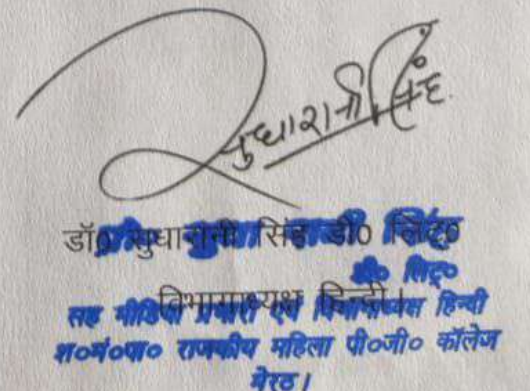 सुधारानी सिंह
डॉ० सुधारानी सिंह डी० लिट्०
डी० लिट्०
विभागाध्यक्ष हिन्दी।
सह मीडिया प्रभारी एवं विभागाध्यक्ष हिन्दी
श०मं०पा० राजकीय महिला पी०जी० कॉलेज
मेरठ।